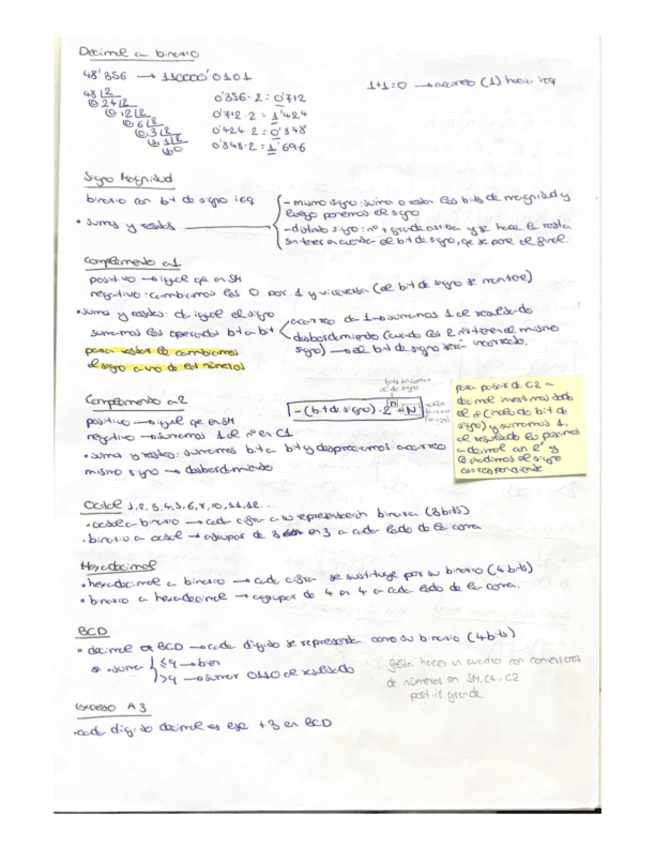 Decimal a binario
48'356 → 110000'0101
1+1=0 → acarreo (1) hacia izq
48 |2
0 24 |2
0 12 |2
0 6 |2
0 3 |2
1 1 |2
1 0
0'356 · 2 = 0'712
0'712 · 2 = 1'424
0'424 · 2 = 0'848
0'848 · 2 = 1'696
Signo Magnitud
binario con bit de signo izq
• sumas y restas
- mismo signo: suma o resta los bits de magnitud y
luego ponemos el signo
- distinto signo: nº + grande arriba y se hace la resta
sin tener en cuenta el bit de signo, que se pone al final.
Complemento a 1
positivo → igual que en SM
negativo: cambiamos los 0 por 1 y viceversa (el bit de signo se mantiene)
• sumas y restas: da igual el signo
sumamos los operandos bit a bit
acarreo da 1 → sumamos 1 al resultado
desbordamiento (cuando los 2 nº tienen el mismo
signo) → el bit de signo será incorrecto.
para restar le cambiamos
el signo a uno de los números
Complemento a 2
bits sin contar
el de signo
-(bit de signo) · 2^n + N
positivo → igual que en SM
negativo → sumamos 1 al nº en C1
• sumas y restas: sumamos bit a bit y despreciamos acarreo
mismo signo → desbordamiento
para pasar de C2 a
decimal invertimos todo
el nº (incluido bit de
signo) y sumamos 1,
el resultado lo pasamos
a decimal con 2^n y
le añadimos el signo
correspondiente
Octal 1,2,3,4,5,6,7,10,11,12...
• octal a binario → cada cifra a su representación binaria (3 bits)
• binario a octal → agrupar de 3 en 3 a cada lado de la coma
Hexadecimal
• hexadecimal a binario → cada cifra se sustituye por su binario (4 bits)
• binario a hexadecimal → agrupar de 4 en 4 a cada lado de la coma.
BCD
• decimal en BCD → cada dígito se representa como su binario (4 bits)
• suma ≤9 → bien
>9 → sumar 0110 al resultado
hacer un cuadro con conversiones
de números en SM, C1, C2
post-it grande
Exceso A 3
• cada dígito decimal es ese +3 en BCD